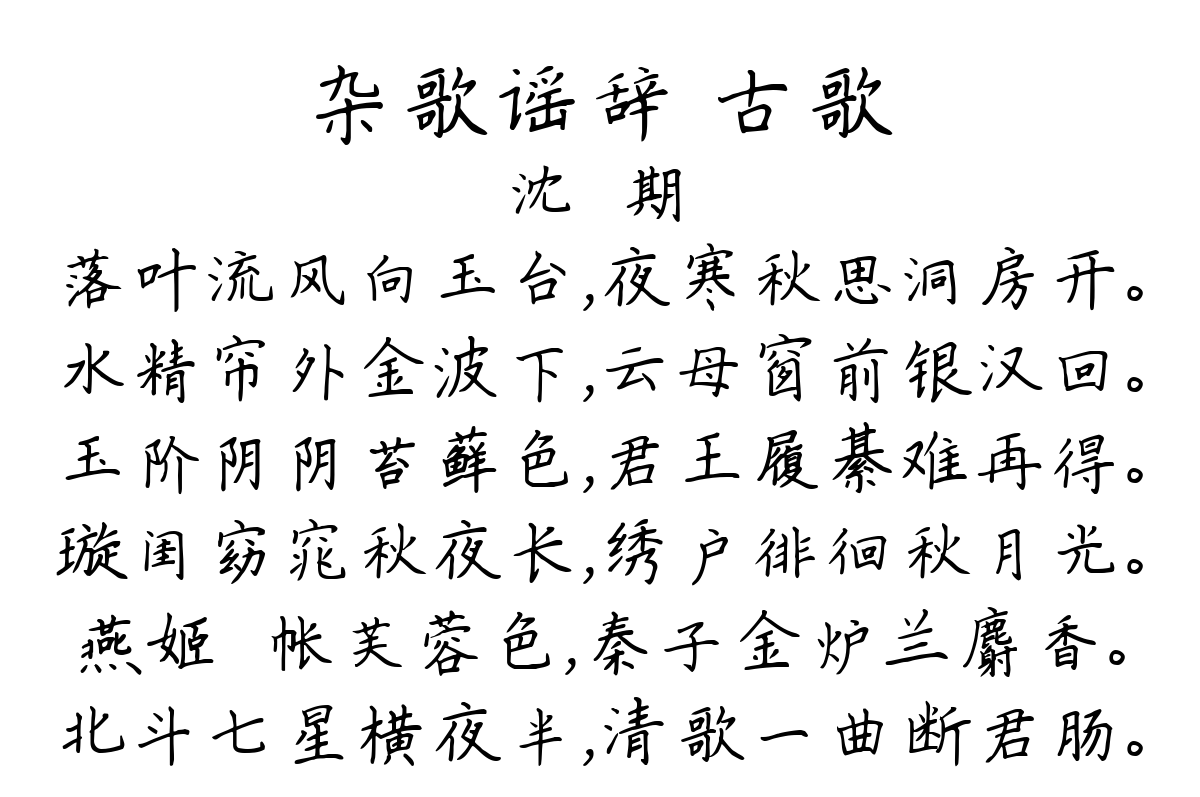 杂歌谣辞 古歌
沈 期
落叶流风向玉台,夜寒秋思洞房开。
水精帘外金波下,云母窗前银汉回。
玉阶阴阴苔藓色,君王履綦难再得。
璇闺窈窕秋夜长,绣户徘徊秋月光。
燕姬 帐芙蓉色,秦子金炉兰麝香。
北斗七星横夜半,清歌一曲断君肠。